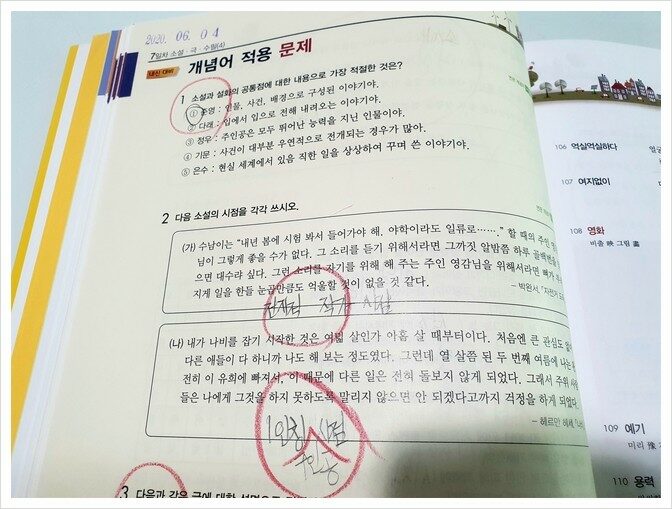 2020. 06. 04
7일차 소설·극·수필(4)
내신 대비 개념어 적용 문제
1 소설과 설화의 공통점에 대한 내용으로 가장 적절한 것은?
① 운영 : 인물, 사건, 배경으로 구성된 이야기야.
② 다래 : 입에서 입으로 전해 내려오는 이야기야.
③ 정우 : 주인공은 모두 뛰어난 능력을 지닌 인물이야.
④ 기문 : 사건이 대부분 우연적으로 전개되는 경우가 많아.
⑤ 은수 : 현실 세계에서 있음 직한 일을 상상하여 꾸며 쓴 이야기야.
2 다음 소설의 시점을 각각 쓰시오.
(가) 수남이는 “내년 봄에 시험 봐서 들어가야 해. 야학이라도 일류로…….” 할 때의 주인 영감
님이 그렇게 좋을 수가 없다. 그 소리를 듣기 위해서라면 그까짓 알밤쯤 하루 골백번을
으면 대수랴 싶다. 그런 소리를 자기를 위해 해 주는 주인 영감님을 위해서라면 뼈가 부
지게 일을 한들 눈곱만큼도 억울할 것이 없을 것 같다.
- 박완서, 「자전거 도
전지적 작가 시점
(나) 내가 나비를 잡기 시작한 것은 여덟 살인가 아홉 살 때부터이다. 처음엔 큰 관심도 없이
다른 애들이 다 하니까 나도 해 보는 정도였다. 그런데 열 살쯤 된 두 번째 여름에 나는
전히 이 유희에 빠져서, 이 때문에 다른 일은 전혀 돌보지 않게 되었다. 그래서 주위 사
들은 나에게 그것을 하지 못하도록 말리지 않으면 안 되겠다고까지 걱정을 하게 되었다.
- 헤르만 헤세, 「나
1인칭 시점
주인공
3 다음과 같은 글에 대한 설명으로
106 역실역실하다
107 여지없이
108 영화
비출 映 그림 畵
109 예기
미리 豫
110 용력